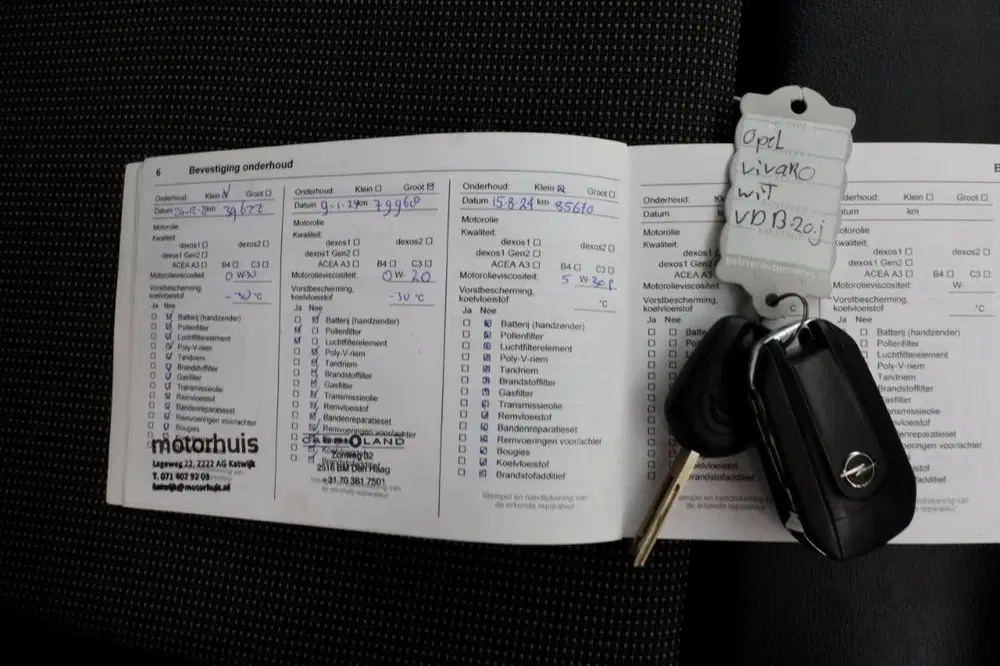 6 Bevestiging onderhoud
Onderhoud: Klein Groot
Datum km 39622
Motorolie
Kwaliteit:
dexos1 dexos2
dexos1 Gen2
ACEA A3 B4 C3
Motorolieviscositeit: 0 W 30
Vorstbescherming,
koelvloeistof -30 °C
Ja Nee
Batterij (handzender)
Pollenfilter
Luchtfilterelement
Poly-V-riem
Tandriem
Brandstoffilter
Gasfilter
Transmissieolie
Remvloeistof
Bandenreparatieset
Remvoeringen voor/achter
Bougies
motorhuis
Lageweg 22, 2222 AG Katwijk
T. 071 402 92 03
katwijk@motorhuis.nl
Onderhoud: Klein Groot
Datum 9-1-24 km 79960
Motorolie
Kwaliteit:
dexos1 dexos2
dexos1 Gen2
ACEA A3 B4 C3
Motorolieviscositeit: 0 W- 20
Vorstbescherming,
koelvloeistof -30 °C
Ja Nee
Batterij (handzender)
Pollenfilter
Luchtfilterelement
Poly-V-riem
Tandriem
Brandstoffilter
Gasfilter
Transmissieolie
Remvloeistof
Bandenreparatieset
Remvoeringen voor/achter
LAND
Zonweg 32
2516 BM Den Haag
+31 70 381 7501
Onderhoud: Klein Groot
Datum 15-8-24 km 85610
Motorolie
Kwaliteit:
dexos1 dexos2
dexos1 Gen2
ACEA A3 B4 C3
Motorolieviscositeit: 5 W-30
Vorstbescherming,
koelvloeistof °C
Ja Nee
Batterij (handzender)
Pollenfilter
Luchtfilterelement
Poly-V-riem
Tandriem
Brandstoffilter
Gasfilter
Transmissieolie
Remvloeistof
Bandenreparatieset
Remvoeringen voor/achter
Bougies
Koelvloeistof
Brandstofadditief
Stempel en handtekening van
de erkende reparateur
Onderhoud:
Datum
Motorolie
Kwaliteit:
dexos1
dexos1 Gen2
ACEA A3
Motorolieviscositeit:
Vorstbescherming,
koelvloeistof
Ja Nee
Opel
Vivaro
wit
VDB-20-j
Klein Groot
km
dexos1 dexos2
dexos1 Gen2
ACEA A3 B4 C3
Motorolieviscositeit: W-
Vorstbescherming,
koelvloeistof °C
Ja Nee
Batterij (handzender)
Pollenfilter
Luchtfilterelement
Poly-V-riem
Tandriem
Brandstoffilter
Gasfilter
Transmissieolie
Remvloeistof
Bandenreparatieset
Remvoeringen voor/achter
Bougies
Koelvloeistof
Brandstofadditief